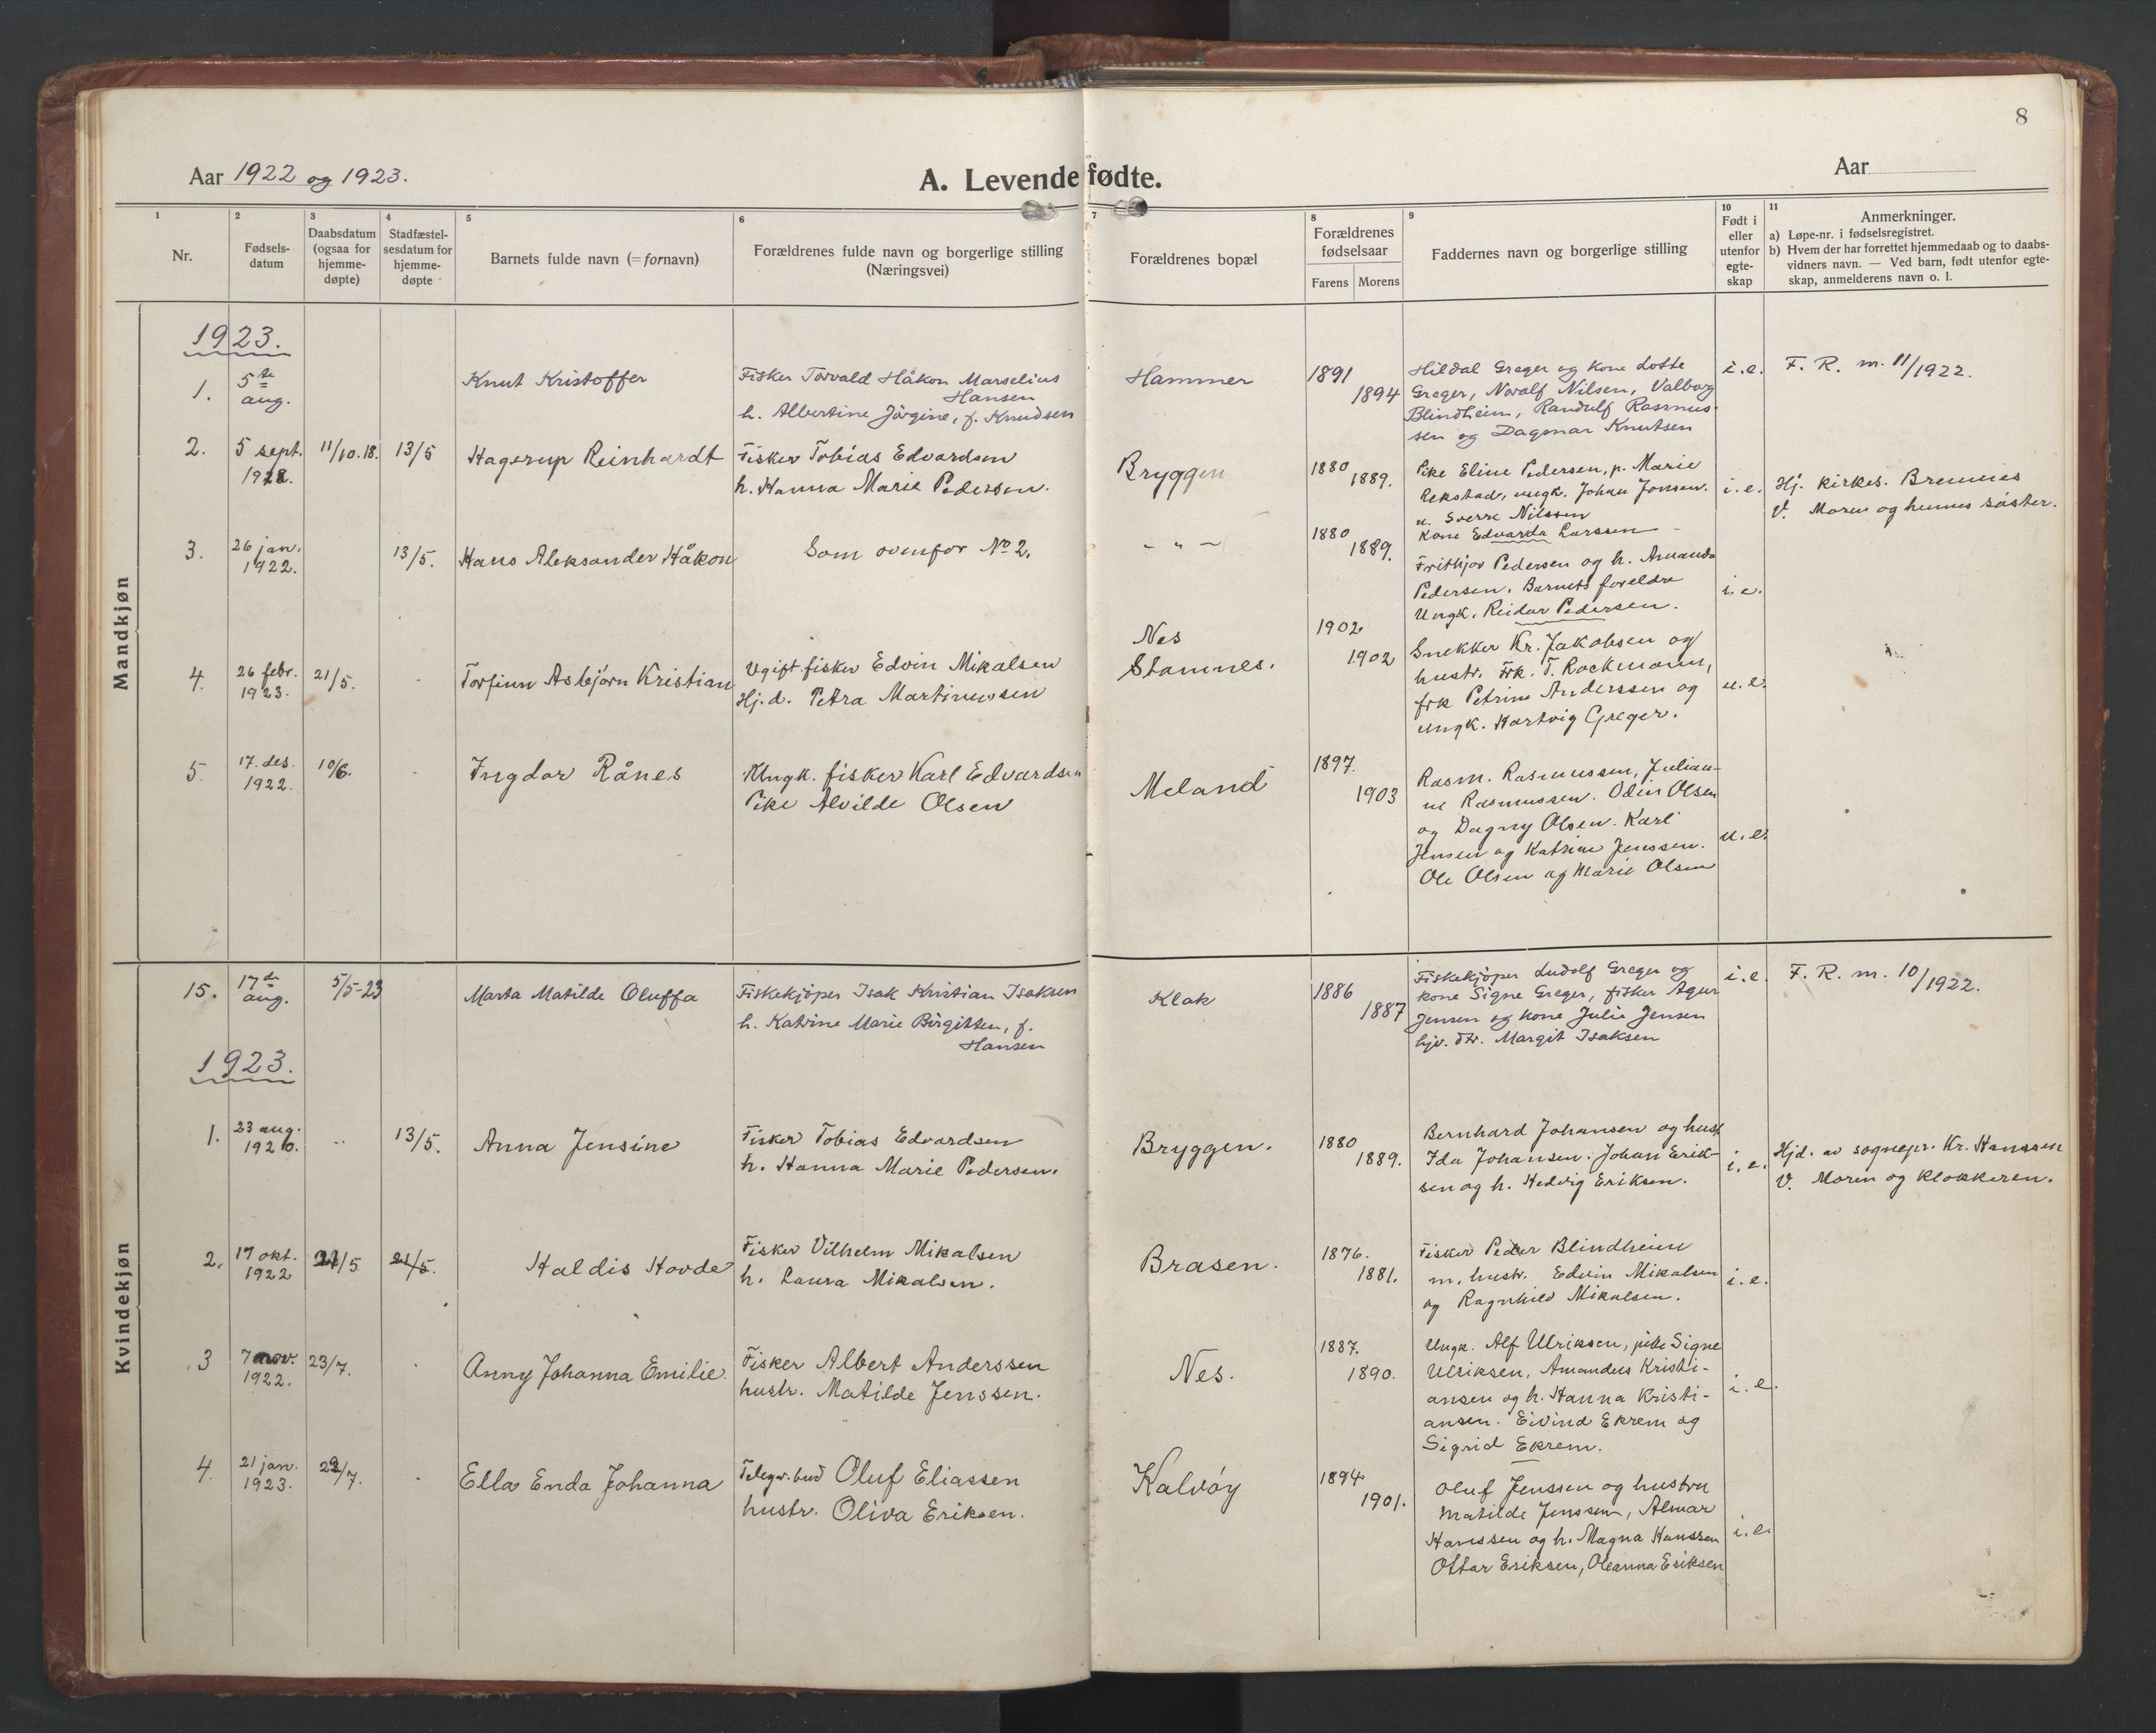 8
Aar 1922 og 1923.
A. Levendefødte.
Aar
1 2 3 4 5 6 7 8 9 10 11
Nr.
Fødsels-
datum
Daabsdatum
(ogsaa for
hjemme-
døpte)
Stadfæstel-
sesdatum for
hjemme-
døpte
Barnets fulde navn (= fornavn)
Forældrenes fulde navn og borgerlige stilling
(Næringsvei)
Forældrenes bopæl
Forældrenes
fødselsaar
Farens Morens
Faddernes navn og borgerlige stilling
Født i
eller
utenfor
egte-
skap
Anmerkninger.
a) Løpe-nr. i fødselsregistret.
b) Hvem der har forrettet hjemmedaab og to daabs-
vidners navn. — Ved barn, født utenfor egte-
skap, anmelderens navn o. l.
Mandkjøn
1923.
1. 5te aug.
Knut Kristoffer
Fisker Torvald Håkon Marselius
Hansen
h. Albertine Jörgine, f. Knudsen
Hammer
1891
1894
Hildal Greger og kone Lotte
Greger, Noralf Nilsen, Valborg
Blindheim, Randulf Rasmus-
sen og Dagmar Knutsen
i.e.
F. R. m. 11/1922.
2. 5 sept.
11/10.18. 13/5
Hagerup Reinhardt
Fisker Tobias Edvardsen
h. Hanna Marie Pedersen.
Bryggen
1880
1889.
Pike Eline Pedersen, p. Marie
Rekstad, ungk. Johan Jonsen.
u. Sverre Nilssen
i.e.
Hj. kirkes. Bremnes
V. Moren og hennes søster.
3. 26 jan.
1922.
13/5.
Hans Aleksander Håkon
Som ovenfor No 2.
- " -
1880
1889.
Kone Edvarda Larssen
Frithjov Pedersen og h. Amanda
Pedersen, Barnets foreldre
Ungk. Reidar Pedersen.
i.e.
4. 26 febr.
1923.
21/5.
Torfinn Asbjörn Kristian
Ugift fisker Edvin Mikalsen
Hj.d. Petra Martinussen
Nes
Stamnes.
1902
1902
Snekker Kr. Jakobsen og
hustr. Frk. T. Rockmann,
frk Petrine Anderssen og
ungk. Hartvig Greger.
u.e.
5. 17. des.
1922.
10/6.
Ingdor Rånes
Ungk. fisker Karl Edvardsen
Pike Alvilde Olsen
Meland
1897.
1903
Rasm. Rasmussen, Julian-
ne Rasmussen. Odin Olsen
og Dagny Olsen. Karl
Jensen og Katrine Jenssen.
Ole Olsen og Marie Olsen
u.e.
Kvindekjøn
15. 17de aug.
5/5-23
Marta Matilde Oluffa
Fiskekjöper Isak Kristian Isaksen
h. Katrine Marie Birgitten, f.
Hansen
Klak
1886
1887
Fiskekjöper Ludolf Greger og
kone Signe Greger, fisker Agur
Jensen og kone Julie Jensen
hjv. dtr. Margit Isaksen
i.e.
F. R. m. 10/1922.
1923.
1. 23 aug.
1920.
13/5.
Anna Jensine
Fisker Tobias Edvardsen
h. Hanna Marie Pedersen.
Bryggen.
1880
1889.
Bernhard Johansen og hust
Ida Johansen. Johan Erik-
sen og h. Hedvig Eriksen.
i.e.
Hjd. av sognepr. Kr. Hanssen
V. Moren og klokkeren.
2. 17 okt.
1922
21/5 21/5.
Haldis Hovde
Fisker Vilhelm Mikalsen
h. Laura Mikalsen.
Brasen.
1876.
1881.
Fisker Peder Blindheim
m. hustr. Edvin Mikalsen
og Ragnhild Mikalsen.
i.e.
3 7 nov.
1922.
23/7.
Anny Johanna Emilie.
Fisker Albert Anderssen
hustr. Matilde Jenssen.
Nes.
1887.
1890.
Ungk. Alf Ulriksen, pike Signe
Ulriksen, Amandus Kristi-
ansen og h. Hanna Kristi-
ansen. Eivind Ekrem og
Sigrid Ekrem.
i.e.
4. 21 jan.
1923.
22/7.
Ella Enda Johanna
Telegr.bud Oluf Eliassen
hustr. Oliva Eriksen.
Kalvöy
1894
1901.
Oluf Jenssen og hustru
Matilde Jenssen, Almar
Hanssen og h. Magna Hanssen
Ottar Eriksen, Oleanna Eriksen
i.e.